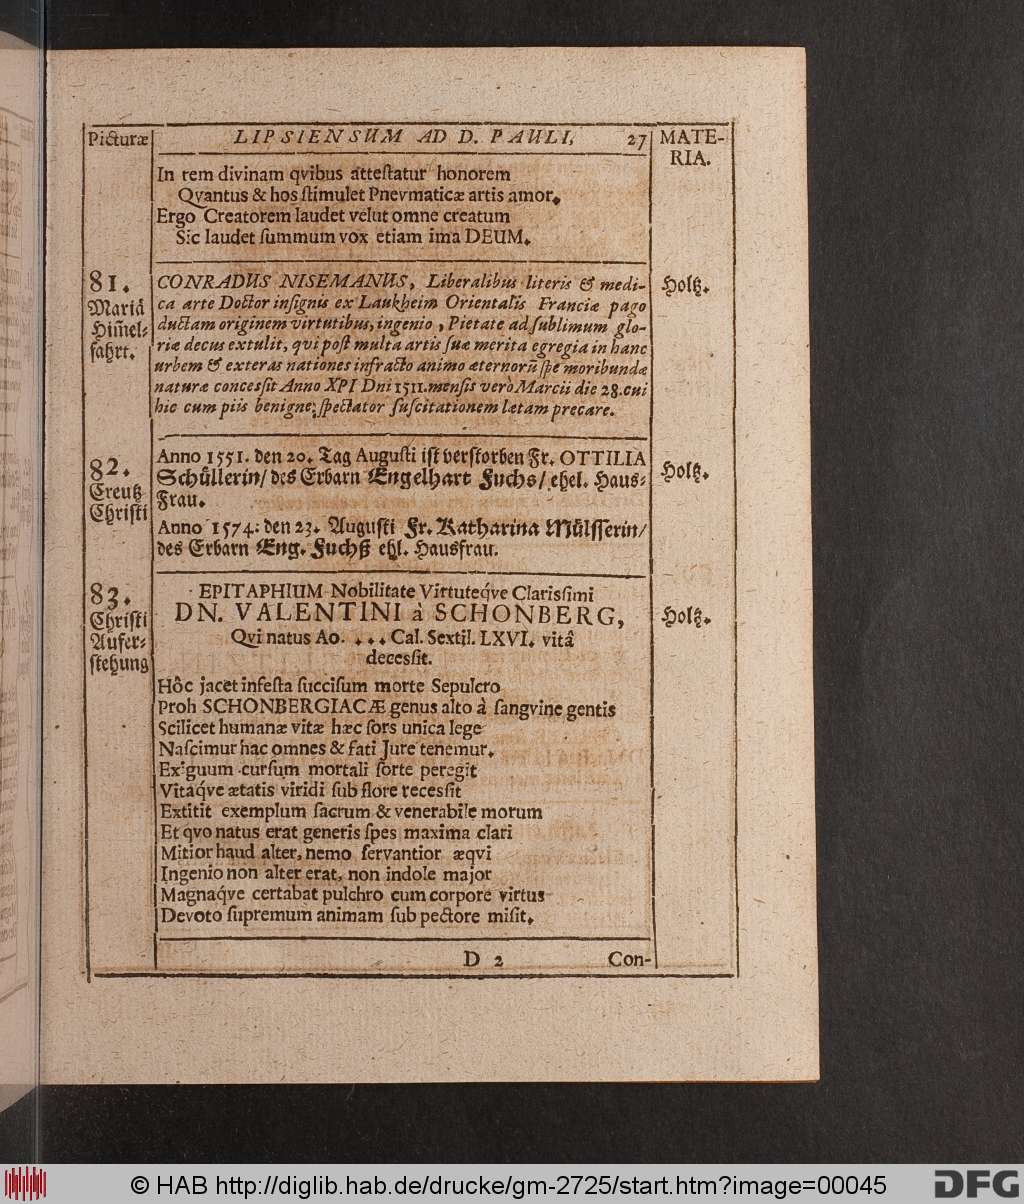 Picturæ
LIPSIENSUM AD D. PAULI,
27
MATE-
RIA.
In rem divinam qvibus attestatur honorem
Qvantus & hos stimulet Pnevmaticæ artis amor.
Ergo Creatorem laudet velut omne creatum
Sic laudet summum vox etiam ima DEUM.
81.
Mariä
Him̃el-
fahrt.
CONRADUS NISEMANUS, Liberalibus literis & medi-
ca arte Doctor insignis ex Laukheim Orientalis Franciæ pago
ductam originem virtutibus, ingenio, Pietate ad sublimum glo-
riæ decus extulit, qvi post multa artis suæ merita egregia in hanc
urbem & exteras nationes infracto animo æternorũ spe moribundæ
naturæ concessit Anno XPI Dni 1511. mensis verò Marcii die 28. cui
hic cum piis benigne spectator suscitationem lætam precare.
Holtz.
82.
Creutz
Christi
Anno 1551. den 20. Tag Augusti ist verstorben Fr. OTTILIA
Schüllerin/ des Erbarn Engelhart Fuchs/ ehel. Haus-
Frau.
Anno 1574. den 23. Augusti Fr. Katharina Mülsserin/
des Erbarn Eng. Fuchß ehl. Hausfrau.
Holtz.
83.
Christi
Aufer-
stehung
EPITAPHIUM Nobilitate Virtuteq́ve Clarissimi
DN. VALENTINI à SCHONBERG,
Qvi natus Ao. . . . Cal. Sextil. LXVI. vitâ
decessit.
Holtz.
Hôc jacet infesta succisum morte Sepulcro
Proh SCHONBERGIACÆ genus alto à sangvine gentis
Scilicet humanæ vitæ hæc sors unica lege
Nascimur hac omnes & fati Jure tenemur.
Exiguum cursum mortali sorte peregit
Vitáqve ætatis viridi sub flore recessit
Extitit exemplum sacrum & venerabile morum
Et qvo natus erat generis spes maxima clari
Mitior haud alter, nemo servantior æqvi
Ingenio non alter erat, non indole major
Magnaq́ve certabat pulchro cum corpore virtus
Devoto supremum animam sub pectore misit.
D 2
Con-
© HAB http://diglib.hab.de/drucke/gm-2725/start.htm?image=00045
DFG